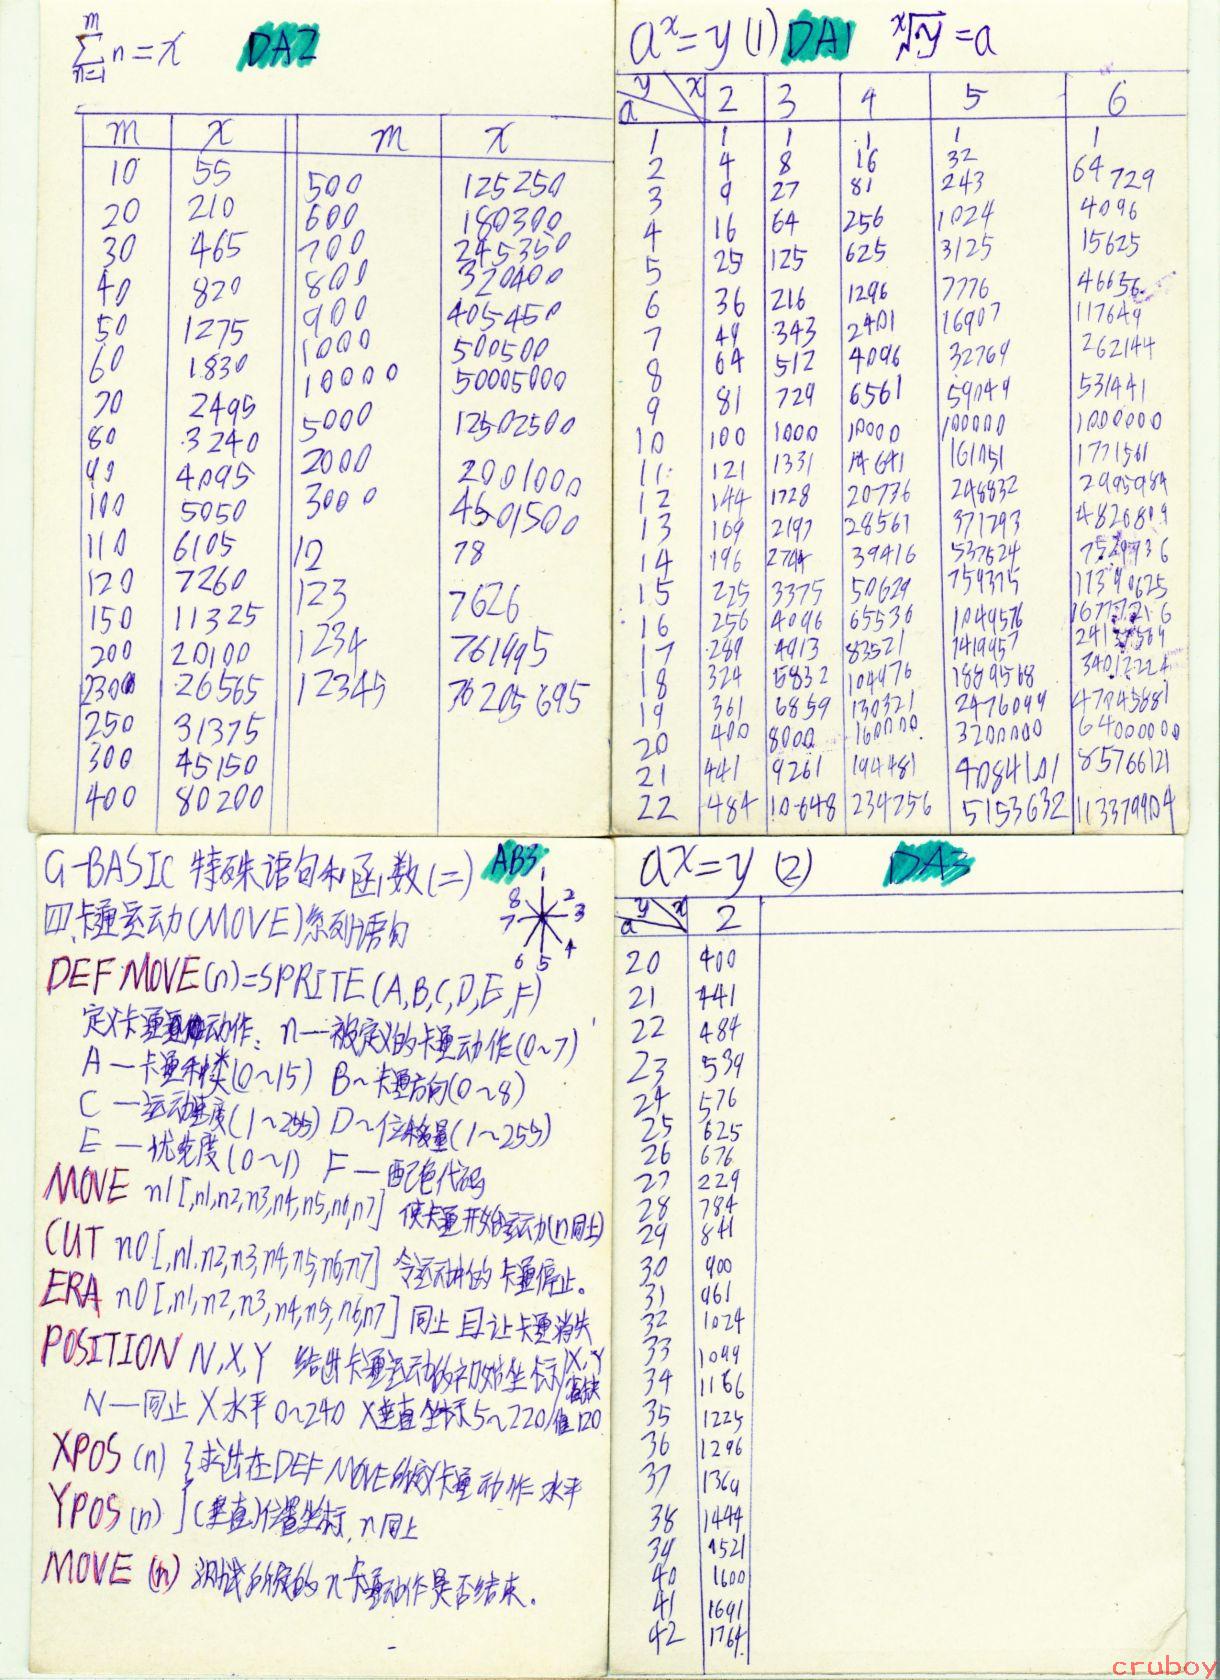 m
∑ n=x DA2
n=1
m x m x
10 55 500 125250
20 210 600 180300
30 465 700 245350
40 820 800 320400
50 1275 900 405450
60 1830 1000 500500
70 2495 10000 50005000
80 3240 5000 12502500
90 4095 2000 2001000
100 5050 3000 4501500
110 6105 12 78
120 7260 123 7626
150 11325 1234 761995
200 20100 12345 76205695
230 26565
250 31375
300 45150
400 80200
a^x=y (1) DA1 ˣ√y=a
y x
a 2 3 4 5 6
1 1 1 1 1 1
2 4 8 16 32 64
3 9 27 81 243 729
4 16 64 256 1024 4096
5 25 125 625 3125 15625
6 36 216 1296 7776 46656
7 49 343 2401 16907 117649
8 64 512 4096 32769 262144
9 81 729 6561 59049 531441
10 100 1000 10000 100000 1000000
11 121 1331 14641 161051 1771561
12 144 1728 20736 248832 2985984
13 169 2197 28561 371293 4826809
14 196 2744 39416 537824 7529936
15 225 3375 50629 759375 11390625
16 256 4096 65536 1049576 16777216
17 289 4913 83521 1419957 24137569
18 324 5832 104976 1889568 34012224
19 361 6859 130321 2476099 47045881
20 400 8000 160000 3200000 64000000
21 441 9261 194481 4084101 85766121
22 484 10648 234256 5153632 113379904
G-BASIC 特殊语句和函数(二) AB3
四.卡通运动(MOVE)系列语句
1 2 3 4 5 6 7 8
DEF MOVE(n)=SPRITE(A,B,C,D,E,F)
定义卡通动作. n—被定义的卡通动作(0~7)
A—卡通种类(0~15) B~卡通方向(0~8)
C—运动速度(1~255) D~位移量(1~255)
E—优先度(0~1) F—配色代码
MOVE n1[,n1,n2,n3,n4,n5,n6,n7] 使卡通开始运动(n同上)
CUT n0[,n1,n2,n3,n4,n5,n6,n7] 令运动中的卡通停止。
ERA n0[,n1,n2,n3,n4,n5,n6,n7] 同上且让卡通消失
POSITION N,X,Y 给出卡通运动的初始坐标/X,Y
N—同上 X水平0~240 X垂直坐标5~220/值120
XPOS (n) }求出在DEF MOVE所定义卡通动作水平
YPOS (n) (垂直)位置坐标, n同上
MOVE (n) 测试所定的n卡通动作是否结束.
a^x=y (2) DA3
y x
a 2
20 400
21 441
22 484
23 539
24 576
25 625
26 676
27 229
28 784
29 841
30 900
31 961
32 1024
33 1099
34 1166
35 1225
36 1296
37 1369
38 1444
39 1521
40 1600
41 1691
42 1764
cruboy